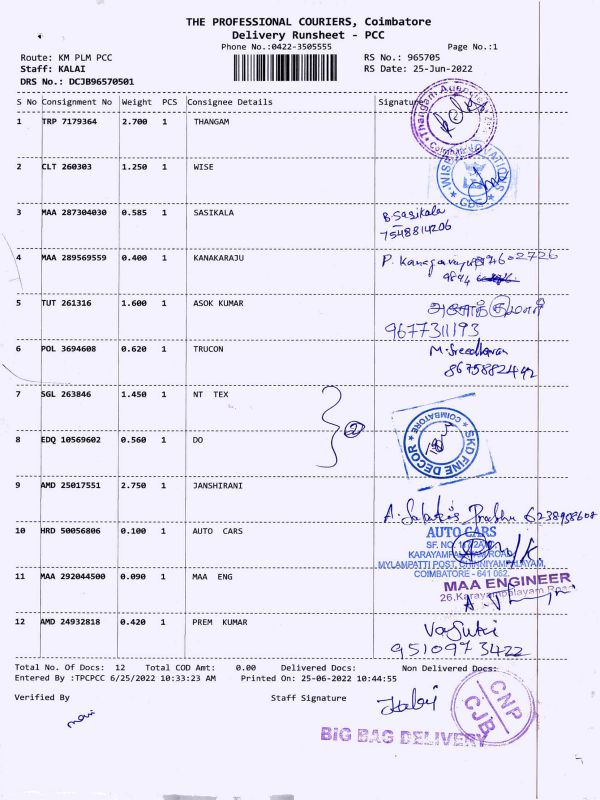 THE PROFESSIONAL COURIERS, Coimbatore
Delivery Runsheet - PCC
Phone No.:0422-3505555 Page No.:1
Route: KM PLM PCC RS No.: 965705
Staff: KALAI RS Date: 25-Jun-2022
DRS No.: DCJB96570501
S No Consignment No Weight PCS Consignee Details Signature
1 TRP 7179364 2.700 1 THANGAM
2 CLT 260303 1.250 1 WISE
3 MAA 287304030 0.585 1 SASIKALA B Sasikala
7548814206
4 MAA 289569559 0.400 1 KANAKARAJU P. Kanagaraju
9894
5 TUT 261316 1.600 1 ASOK KUMAR
9677311193
6 POL 3694608 0.620 1 TRUCON M. Sreedharan
8675882442
7 SGL 263846 1.450 1 NT TEX
2
COIMBATORE
8 EDQ 10569602 0.560 1 DO SKD FINE DECOR
9 AMD 25017551 2.750 1 JANSHIRANI
10 HRD 50056806 0.100 1 AUTO CARS AUTO CARS
SF. NO.
KARAYAMPALAYAM ROAD,
MYLAMPATTI POST, CHINNIYAMPALAYAM,
COIMBATORE - 641 062.
11 MAA 292044500 0.090 1 MAA ENG MAA ENGINEER
26,Karayampalayam Road
12 AMD 24932818 0.420 1 PREM KUMAR Vasuki
9510973422
Total No. Of Docs: 12 Total COD Amt: 0.00 Delivered Docs: Non Delivered Docs:
Entered By :TPCPCC 6/25/2022 10:33:23 AM Printed On: 25-06-2022 10:44:55
Verified By Staff Signature
CNP
CJB
BIG BAG DELIVERY